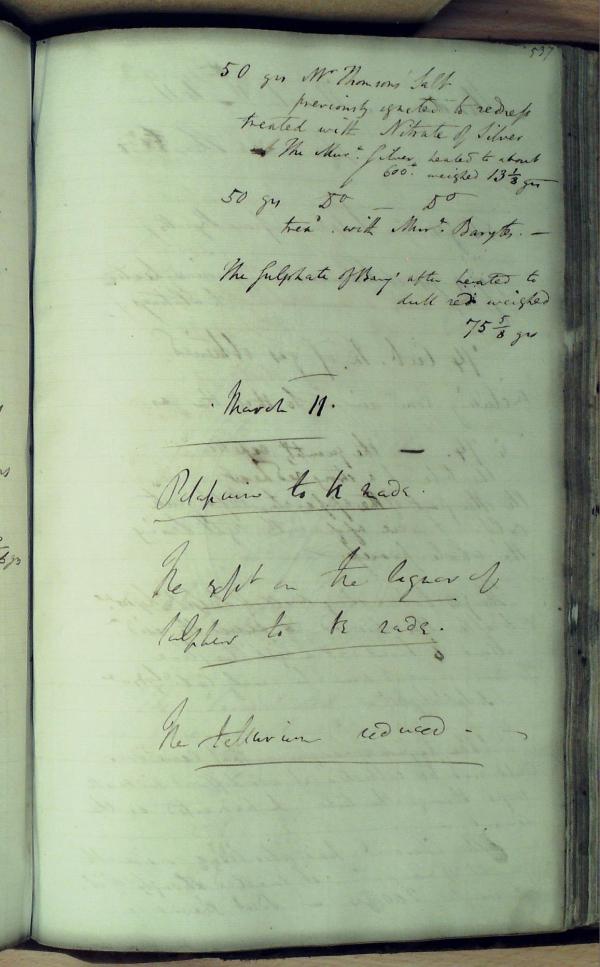 537
50 grs Mr Thomsons Salt
previously ignited to redness
treated with Nitrate of Silver
The Murt. Silver, heated to about
600° weighed 13 1/8 grs
50 grs Do — Do
tread. with Murt. Barytes. —
The Sulphate of Bary after heated to
dull red weighed
75 5/8 grs
March 11.
Potassium to be made.
The expt on the liquor of
Sulphur to be made.
The tellurium reduced -